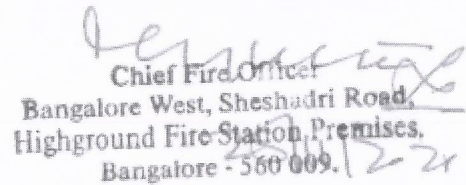 Chief Fire Officer
Bangalore West, Sheshadri Road,
Highground Fire Station Premises.
Bangalore - 560 009.